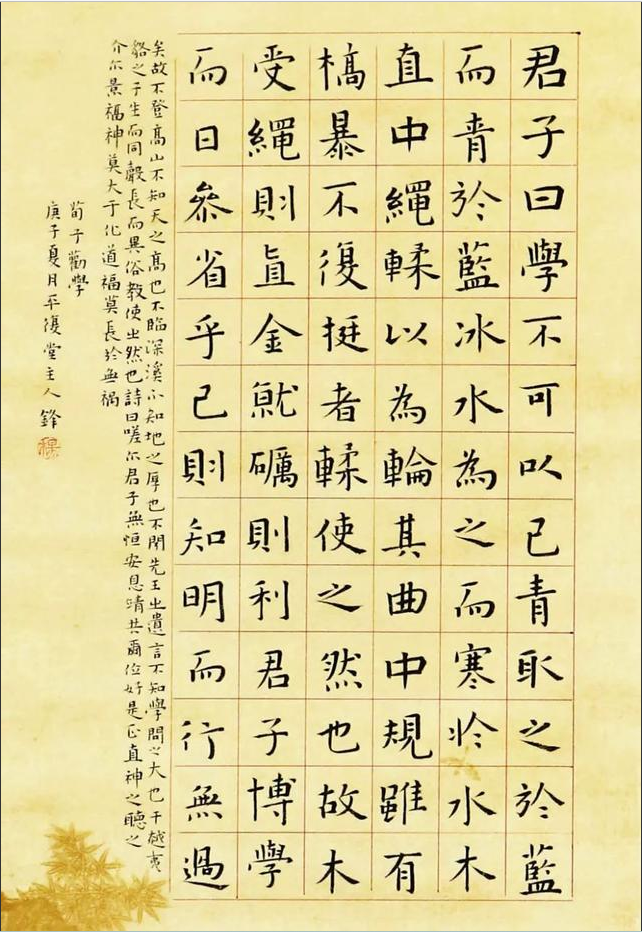 君子曰學不可以已青取之於藍
而青於藍冰水為之而寒於水木
直中繩輮以為輪其曲中規雖有
槁暴不復挺者輮使之然也故木
受繩則直金就礪則利君子博學
而日參省乎己則知明而行無過
矣故不登高山不知天之高也不臨深溪不知地之厚也不聞先王之遺言不知學問之大也干越夷
貉之子生而同聲長而異俗教使之然也詩曰嗟尒君子無恒安息靖共爾位好是正直神之聽之
介尒景福神莫大于化道福莫長於無禍
荀子勸學
庚子夏月平復堂主人鋒